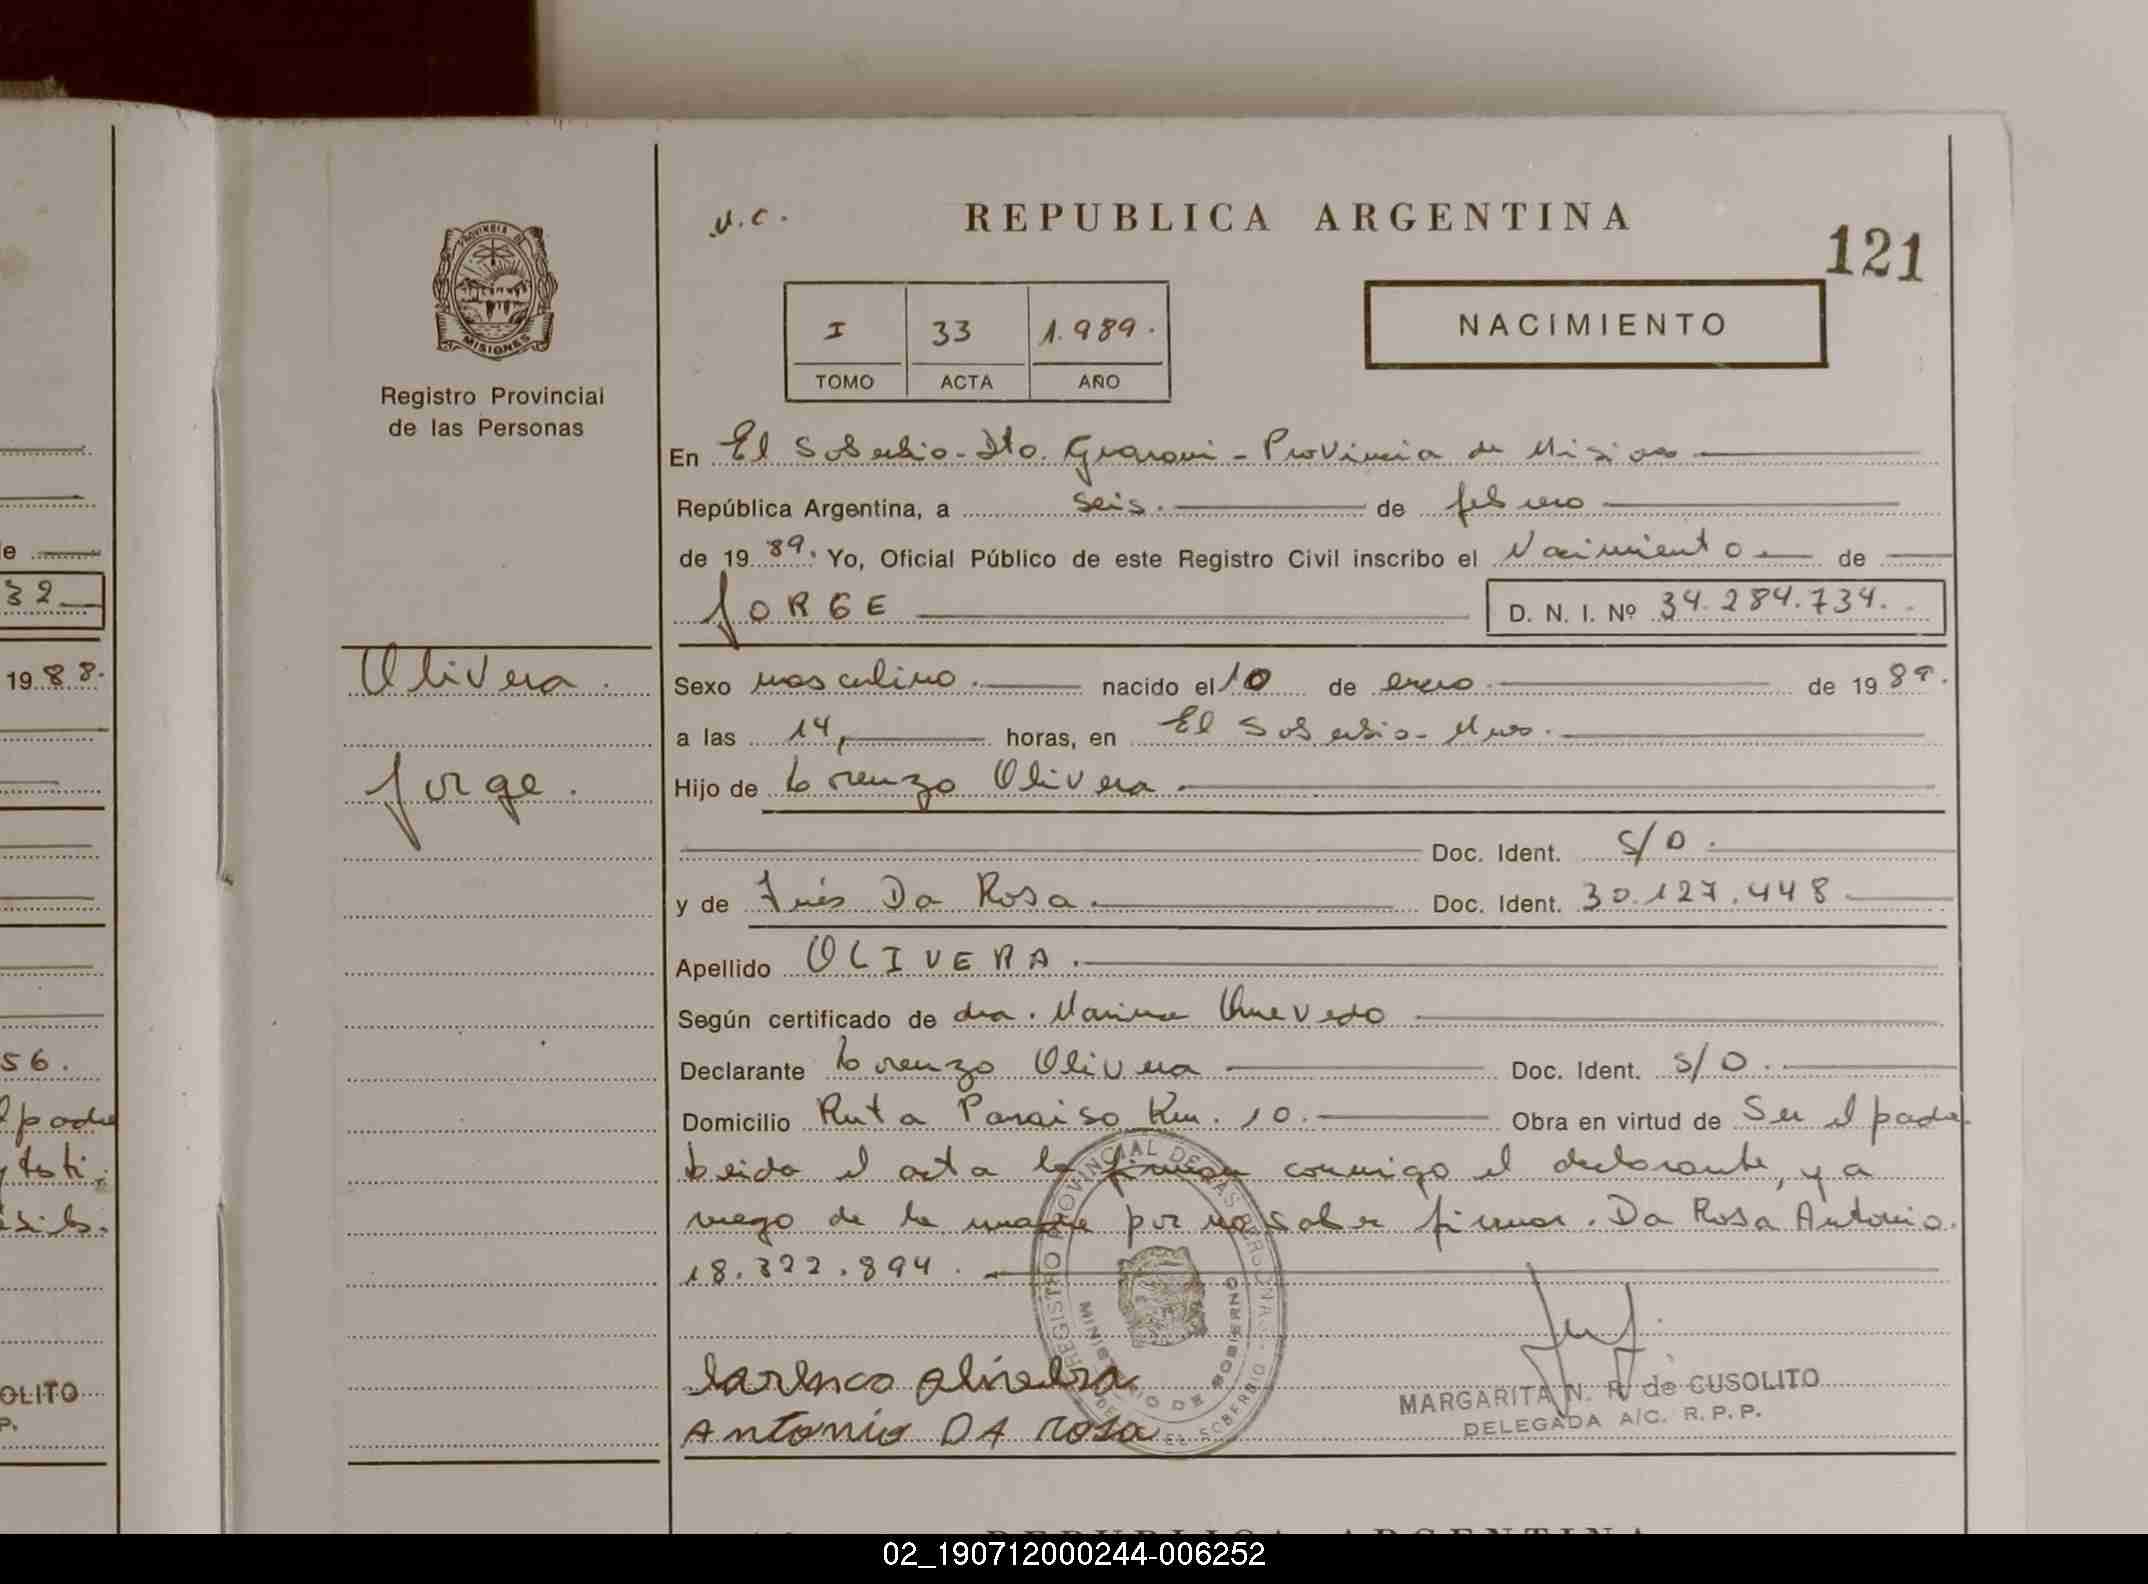 REPUBLICA ARGENTINA
121
I 33 1.989.
TOMO ACTA AÑO
NACIMIENTO
PROVINCIA DE
MISIONES
Registro Provincial
de las Personas
En El Soberbio - Dto. Guaraní - Provincia de Misiones
República Argentina, a seis. de febrero
de 1989. Yo, Oficial Público de este Registro Civil inscribo el Nacimiento de
JORGE D. N. I. Nº 34.284.734.
Olivera.
Jorge.
Sexo masculino. nacido el 10 de enero de 1989.
a las 14, horas, en El Soberbio - Mnes.
Hijo de Lorenzo Olivera
Doc. Ident. S/D.
y de Inés Da Rosa. Doc. Ident. 30.127.448
Apellido OLIVERA.
Según certificado de dra. Marina
Declarante Lorenzo Olivera Doc. Ident. S/D.
Domicilio Ruta Paraiso Km. 10. Obra en virtud de Ser el padre
Leida el acta la firman conmigo el declarante, y a
ruego de la madre por no saber firmar. Da Rosa Antonio.
18.322.894.
REGISTRO PROVINCIAL DE LAS PERSONAS
MINISTERIO DE GOBIERNO
EL SOBERBIO
Antonio DA Rosa
MARGARITA N. R. de CUSOLITO
DELEGADA A/C. R.P.P.
32
1988.
56.
l padre
OLITO
P.
REPUBLICA ARGENTINA
02_190712000244-006252